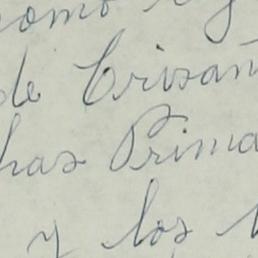 como
de Crisan
has Prima
y los